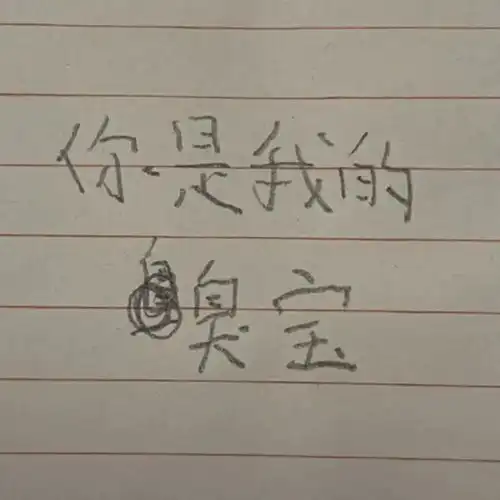 你是我的
臭宝